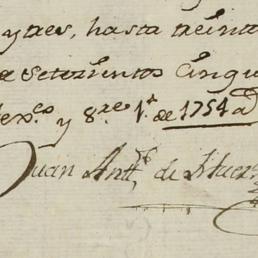 y tres, hasta treinta
de Setecientos Cinqu
Mex.co y 8.re 1.o de 1754 a
Juan Ant.o de